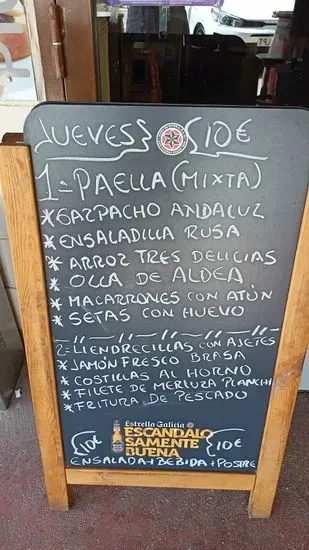 JUEVES 10€
1= PAELLA (MIXTA)
* GAZPACHO ANDALUZ
* ENSALADILLA RUSA
* ARROZ TRES DELICIAS
* OLLA DE ALDEA
* MACARRONES CON ATÚN
* SETAS CON HUEVO
2= LIENDRECILLAS CON AJETES
* JAMÓN FRESCO BRASA
* COSTILLAS AL HORNO
* FILETE DE MERLUZA PLANCHA
* FRITURA DE PESCADO
Estrella Galicia
ESCANDALO
SAMENTE
BUENA
10€ 10€
ENSALADA + BEBIDA + POSTRE